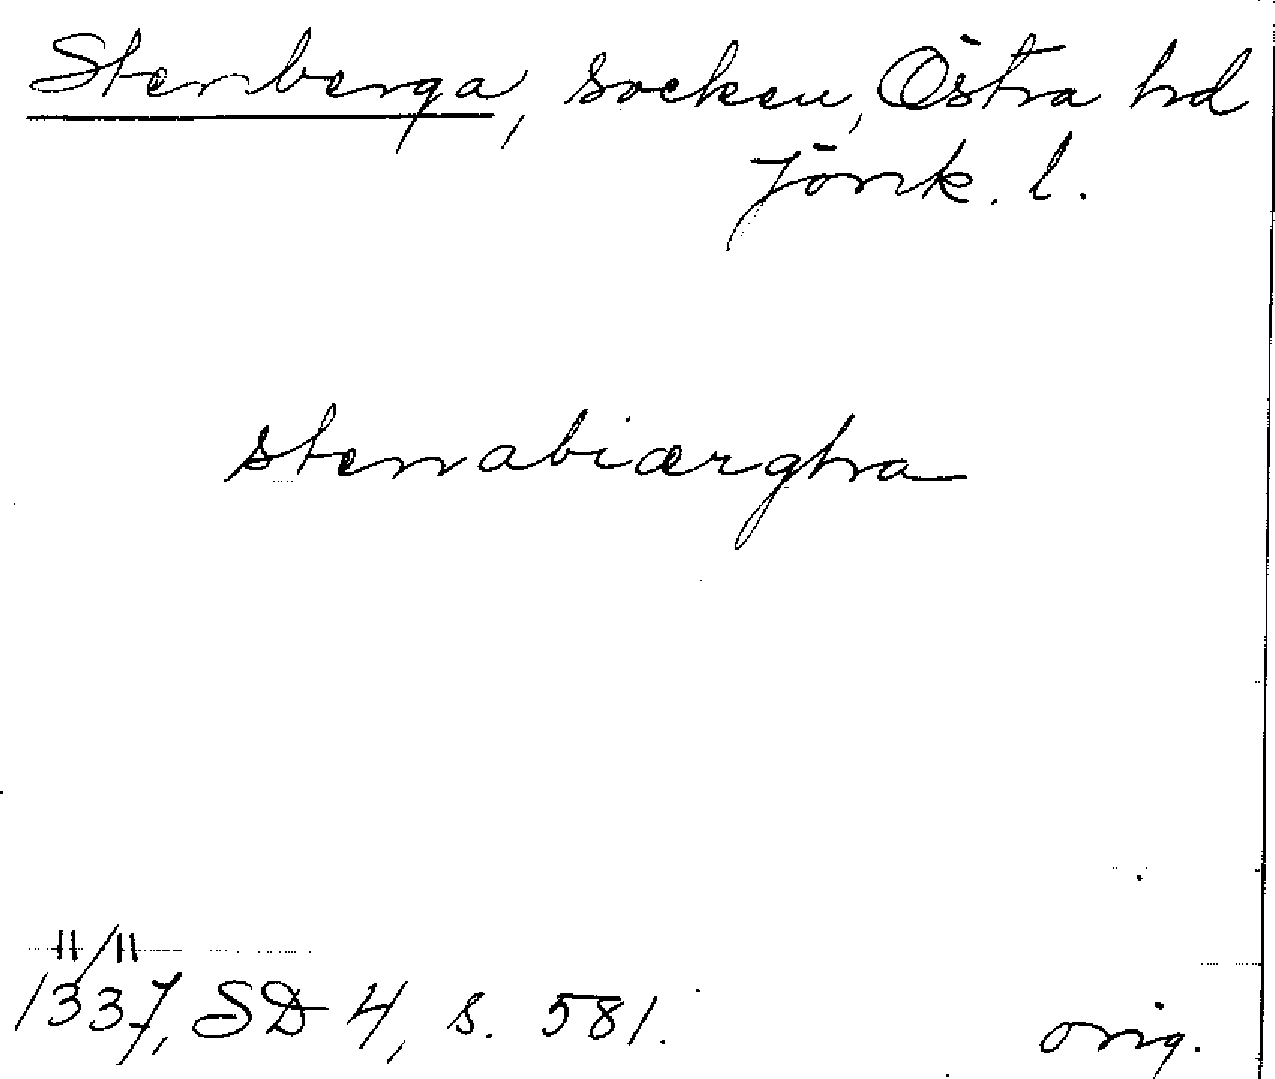 Stenberga, socken, Östra hd
Jönk. l.
stenabiærgha
11/11
1337, SD 4, s. 581.
orig.